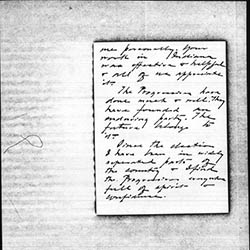 me personally. Your
work in Indiana
was effective & helpful
& all of us appreciate
it.
The Progressives have
done much & well. They
have founded an
enduring party. The
future belongs to
it.
Since the election
I have been in widely
separated parts of
the country & find
the Progressives everywhere
full of spirit &
confidence.